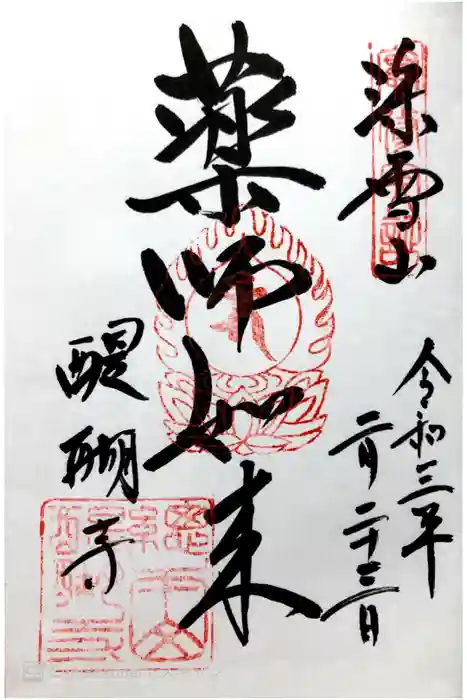 深雪山
薬師如来
醍醐寺
令和三年
二月二十三日